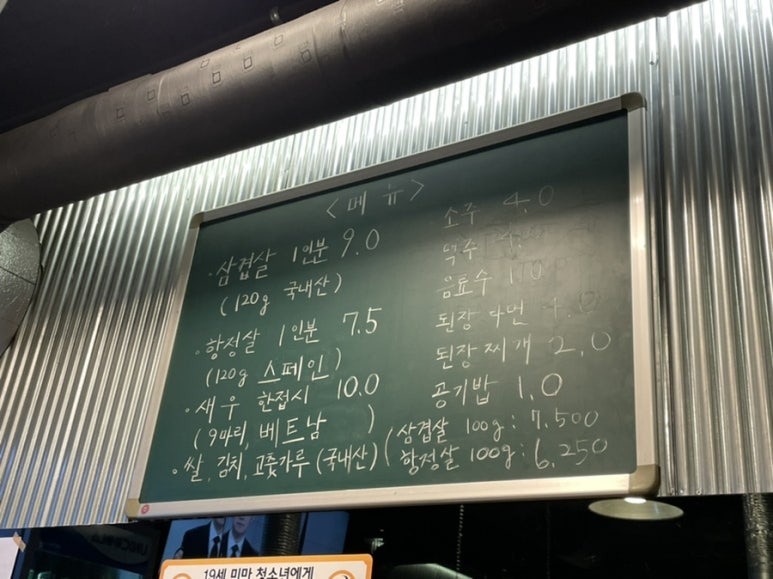 <메 뉴>
· 삼겹살 1인분 9.0
(120g 국내산)
· 항정살 1인분 7.5
(120g 스페인)
· 새우 한접시 10.0
(9마리, 베트남)
· 쌀, 김치, 고춧가루 (국내산)
소주 4.0
맥주
음료수 1.0
된장 라면 4.0
된장찌개 2.0
공기밥 1.0
(삼겹살 100g : 7,500
항정살 100g : 6,250
19세 미만 청소년에게